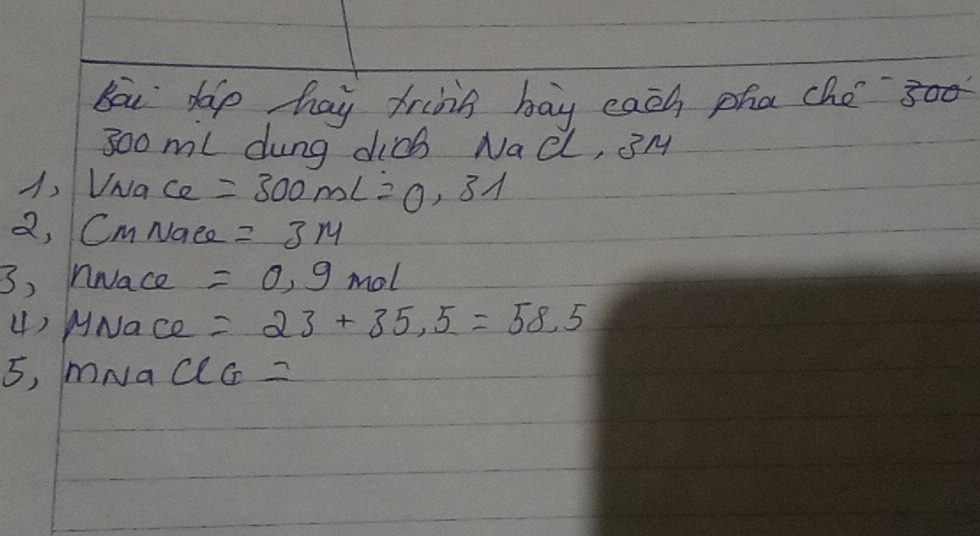 Bài tập hãy trình bày cách pha chế 300
300 ml dung dịch NaCl, 3M
1, VNaCl = 300ml = 0,3l
2, CM NaCl = 3M
3, nNaCl = 0,9 mol
4, MNaCl = 23 + 35,5 = 58,5
5, mNaCl =